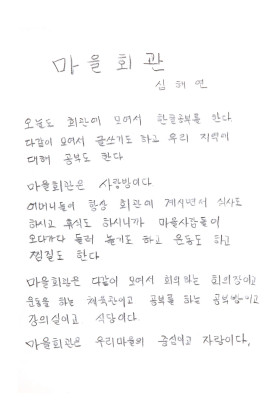 마을회관
심해연
오늘도 회관에 모여서 한글공부를 한다
다같이 모여서 글쓰기도 하고 우리 지역에
대해 공부도 한다
마을회관은 사랑방이다
어머니들이 항상 회관에 계시면서 식사도
하시고 휴식도 하시니까 마을사람들이
오다가다 들러 놀기도 하고 운동도 하고
찜질도 한다
마을회관은 다같이 모여서 회의하는 회의장이고
운동을 하는 체육관이고 공부를 하는 공부방이고
강의실이고 식당이다
마을회관은 우리마을의 중심이고 자랑이다,